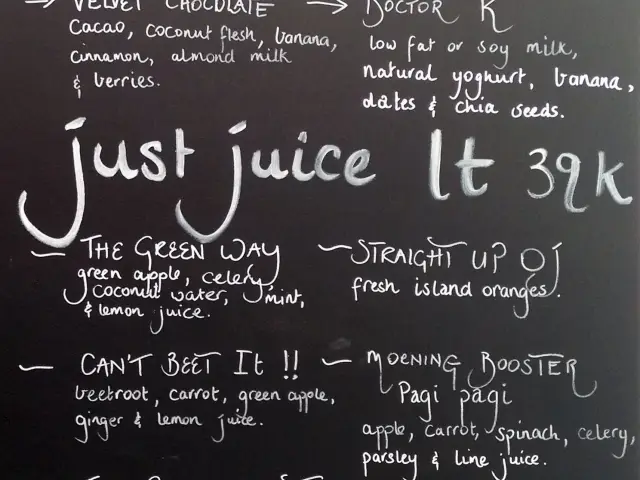 VELVET CHOCOLATE
Cacao, coconut flesh, banana,
cinnamon, almond milk
& berries.
DOCTOR K
low fat or soy milk,
natural yoghurt, banana,
dates & chia seeds.
just juice lt 39K
THE GREEN WAY
green apple, celery
coconut water, mint,
& lemon juice.
STRAIGHT UP OJ
fresh island oranges.
CAN'T BEET It !!
beetroot, carrot, green apple,
ginger & lemon juice.
MOENING BOOSTER
Pagi pagi
apple, carrot, spinach, celery,
parsley & line juice.